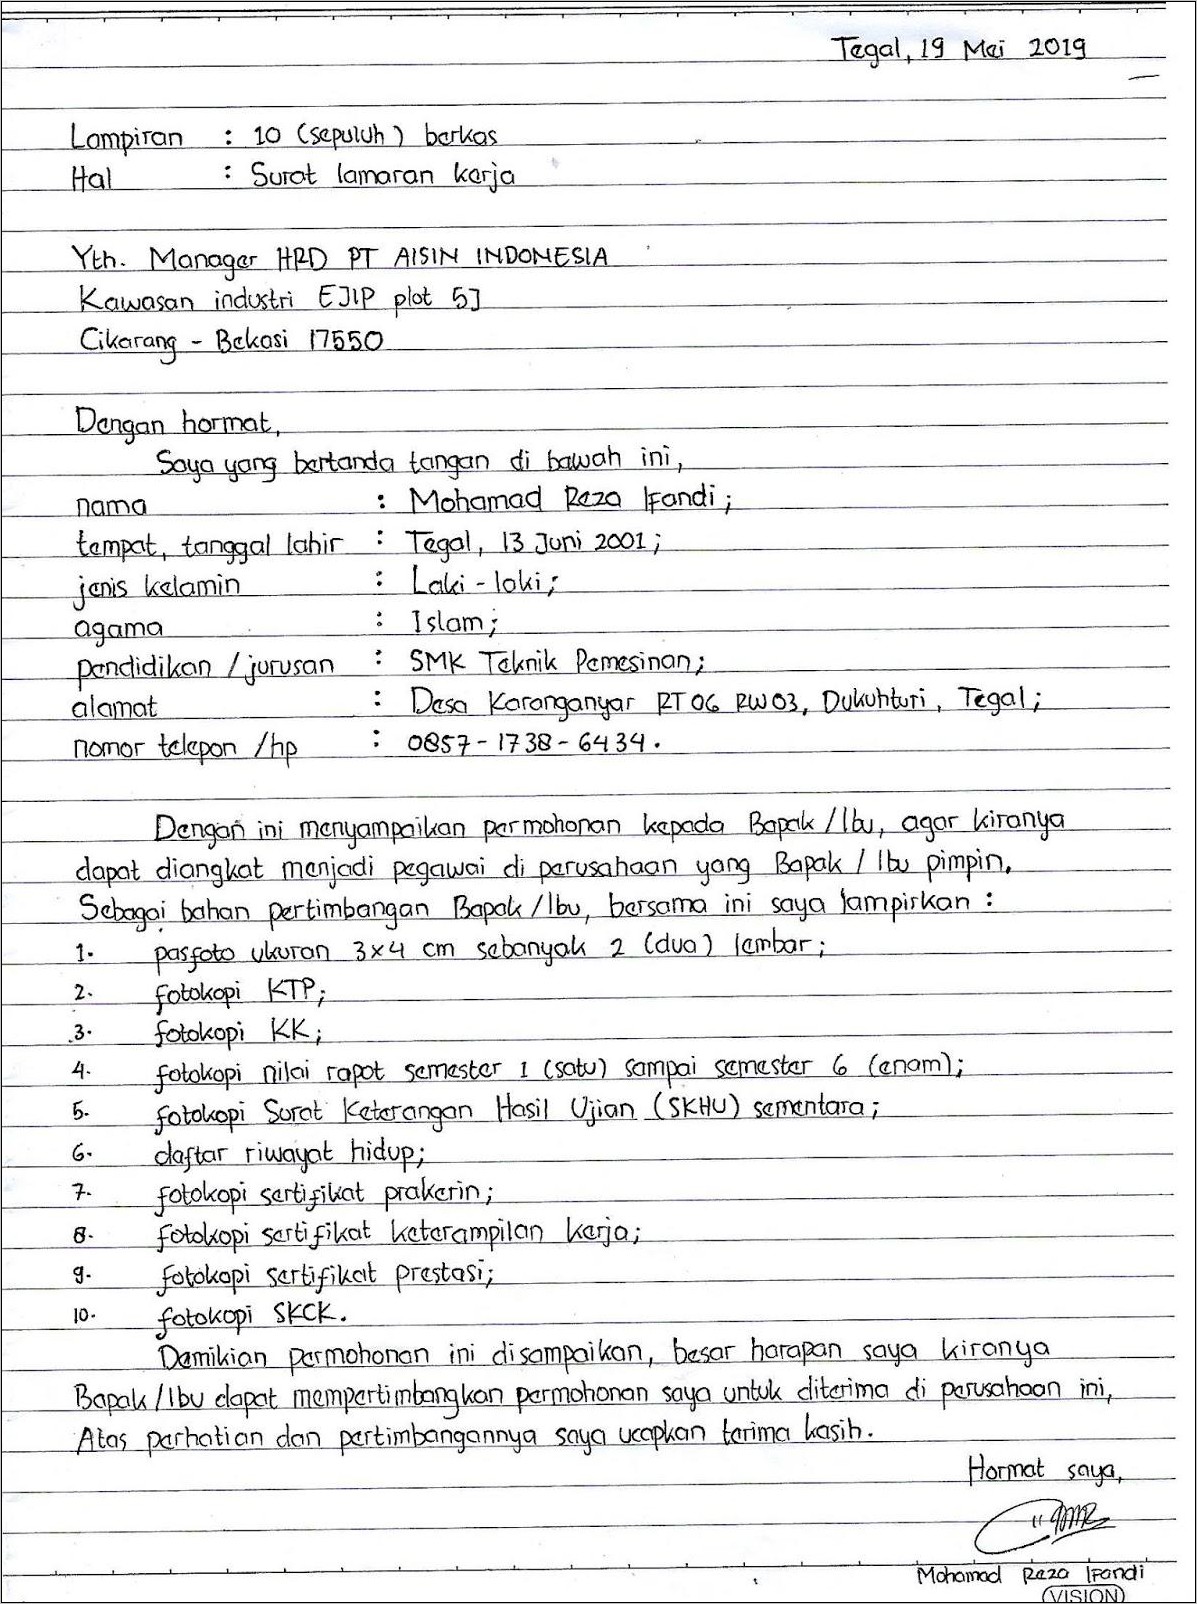 Tegal, 19 Mei 2019
Lampiran : 10 (sepuluh) berkas
Hal : Surat lamaran kerja
Yth. Manager HRD PT AISIN INDONESIA
Kawasan industri EJIP plot 5J
Cikarang - Bekasi 17550
Dengan hormat,
Saya yang bertanda tangan di bawah ini,
nama : Mohamad Reza Ifandi;
tempat, tanggal lahir : Tegal, 13 Juni 2001;
jenis kelamin : Laki-laki;
agama : Islam;
pendidikan / jurusan : SMK Teknik Pemesinan;
alamat : Desa Karanganyar RT 06 RW 03, Dukuhturi, Tegal;
nomor telepon / hp : 0857-1738-6434.
Dengan ini menyampaikan permohonan kepada Bapak / Ibu, agar kiranya
dapat diangkat menjadi pegawai di perusahaan yang Bapak / Ibu pimpin.
Sebagai bahan pertimbangan Bapak / Ibu, bersama ini saya lampirkan :
1. pasfoto ukuran 3x4 cm sebanyak 2 (dua) lembar;
2. fotokopi KTP;
3. fotokopi KK;
4. fotokopi nilai rapot semester 1 (satu) sampai semester 6 (enam);
5. fotokopi Surat Keterangan Hasil Ujian (SKHU) sementara;
6. daftar riwayat hidup;
7. fotokopi sertifikat prakerin;
8. fotokopi sertifikat keterampilan kerja;
9. fotokopi sertifikat prestasi;
10. fotokopi SKCK.
Demikian permohonan ini disampaikan, besar harapan saya kiranya
Bapak / Ibu dapat mempertimbangkan permohonan saya untuk diterima di perusahaan ini,
Atas perhatian dan pertimbangannya saya ucapkan terima kasih.
Hormat saya,
Mohamad Reza Ifandi
VISION